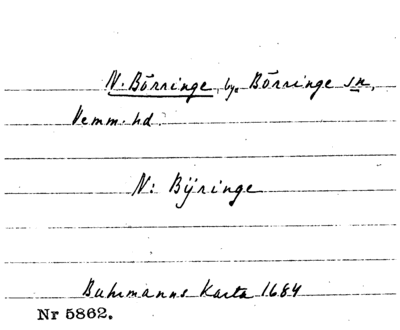 N. Börringe, by. Börringe sn,
Vemm. hd.
N: Bÿringe
Buhrmanns Karta 1684
Nr 5862.